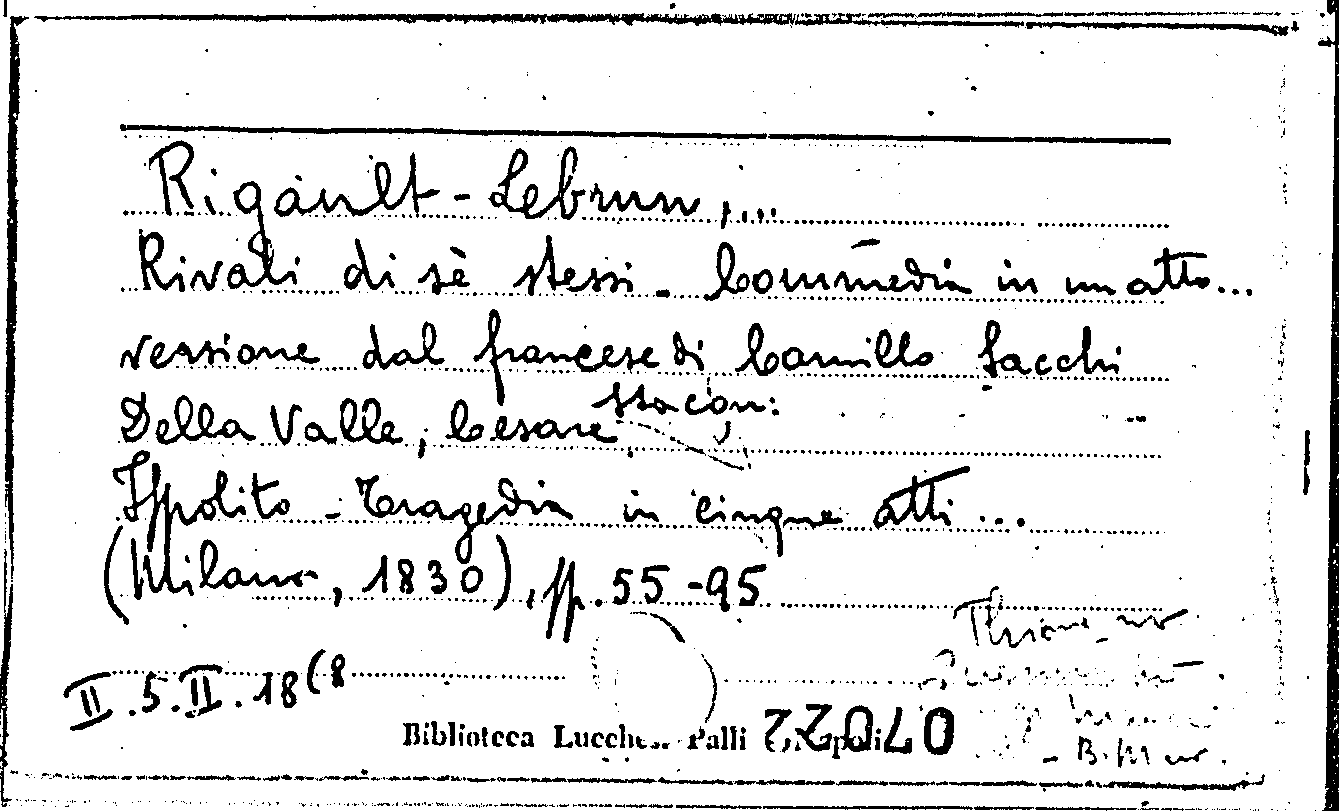 Rigault-Lebrun,...
Rivali di sè stessi - Commedia in un atto...
versione dal francese di Camillo Sacchi
Della Valle, Cesare
Ippolito - Tragedia in cinque atti...
(Milano, 1830), pp. 55-95
II.5.II.18(8
Biblioteca Palli